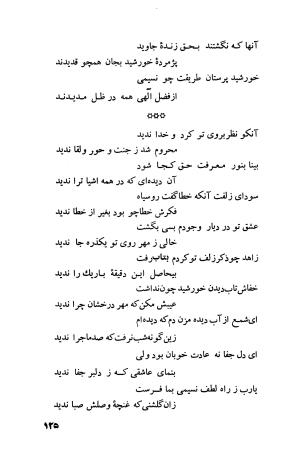 آنها که نگشتند بحق زندهٔ جاوید
پژمردهٔ خورشید بجان همچو قدیدند
خورشید پرستان طریقت چو نسیمی
ازفضل الهی همه در ظل مدیدند
***
آنکو نظر بروی تو کرد و خدا ندید
محروم شد ز جنت و حور ولقا ندید
بینا بنور معرفت حق کجا شود
آن دیده‌ای که در همه اشیا ترا ندید
سودای زلفت آنکه خطا گفت روسیاه
فکرش خطا چو بود بغیر از خطا ندید
عشق تو در دیار وجودم بسی بگشت
خالی ز مهر روی تو یکذره جا ندید
زاهد چو ذکر زلف تو کردم بتاب رفت
بیحاصل این دقیقهٔ باریک را ندید
خفاش تاب دیدن خورشید چون نداشت
عیبش مکن که مهر درخشان چرا ندید
ای شمع از آب دیده مزن دم که دیده‌ام
زین گونه شب نرفت که صد ماجرا ندید
ای دل جفا نه عادت خوبان بود ولی
بنمای عاشقی که ز دلبر جفا ندید
یارب ز راه لطف نسیمی بما فرست
زان گلشنی که غنچهٔ وصلش صبا ندید
۱۲۵